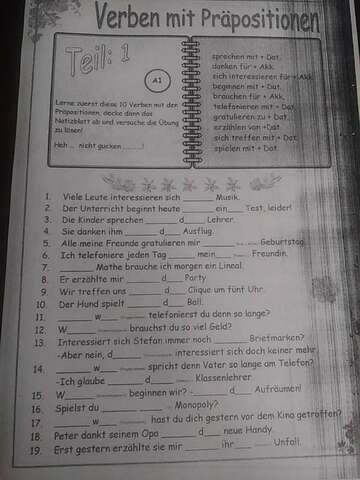 Verben mit Präpositionen
Teil: 1
A1
Lerne zuerst diese 10 Verben mit den
Präpositionen, decke dann das
Notizblatt ab und versuche die Übung
zu lösen!
Heh ... nicht gucken ........!
sprechen mit + Dat.
danken für + Akk.
sich interessieren für + Akk.
beginnen mit + Dat.
brauchen für + Akk.
telefonieren mit + Dat.
gratulieren zu + Dat.
erzählen von +Dat.
sich treffen mit + Dat.
spielen mit + Dat.
1. Viele Leute interessieren sich ______ Musik.
2. Der Unterricht beginnt heute ______ ein___ Test, leider!
3. Die Kinder sprechen ______ d____ Lehrer.
4. Sie danken ihm ______ d____ Ausflug.
5. Alle meine Freunde gratulieren mir ______ Geburtstag.
6. Ich telefoniere jeden Tag ______ mein____ Freundin.
7. ______ Mathe brauche ich morgen ein Lineal.
8. Er erzählte mir ______ d____ Party
9. Wir treffen uns ______ d____ Clique um fünf Uhr.
10. Der Hund spielt ______ d____ Ball.
11. ______ w____ telefonierst du denn so lange?
12. W______ brauchst du so viel Geld?
13. Interessiert sich Stefan immer noch ______ Briefmarken?
-Aber nein, d______ interessiert sich doch keiner mehr.
14. ______ w____ spricht denn Vater so lange am Telefon?
-Ich glaube ______ d____ Klassenlehrer.
15. W______ beginnen wir? -______ d____ Aufräumen!
16. Spielst du ______ Monopoly?
17. ______ w____ hast du dich gestern vor dem Kino getroffen?
18. Peter dankt seinem Opa ______ d____ neue Handy.
19. Erst gestern erzählte sie mir ______ ihr____ Unfall.